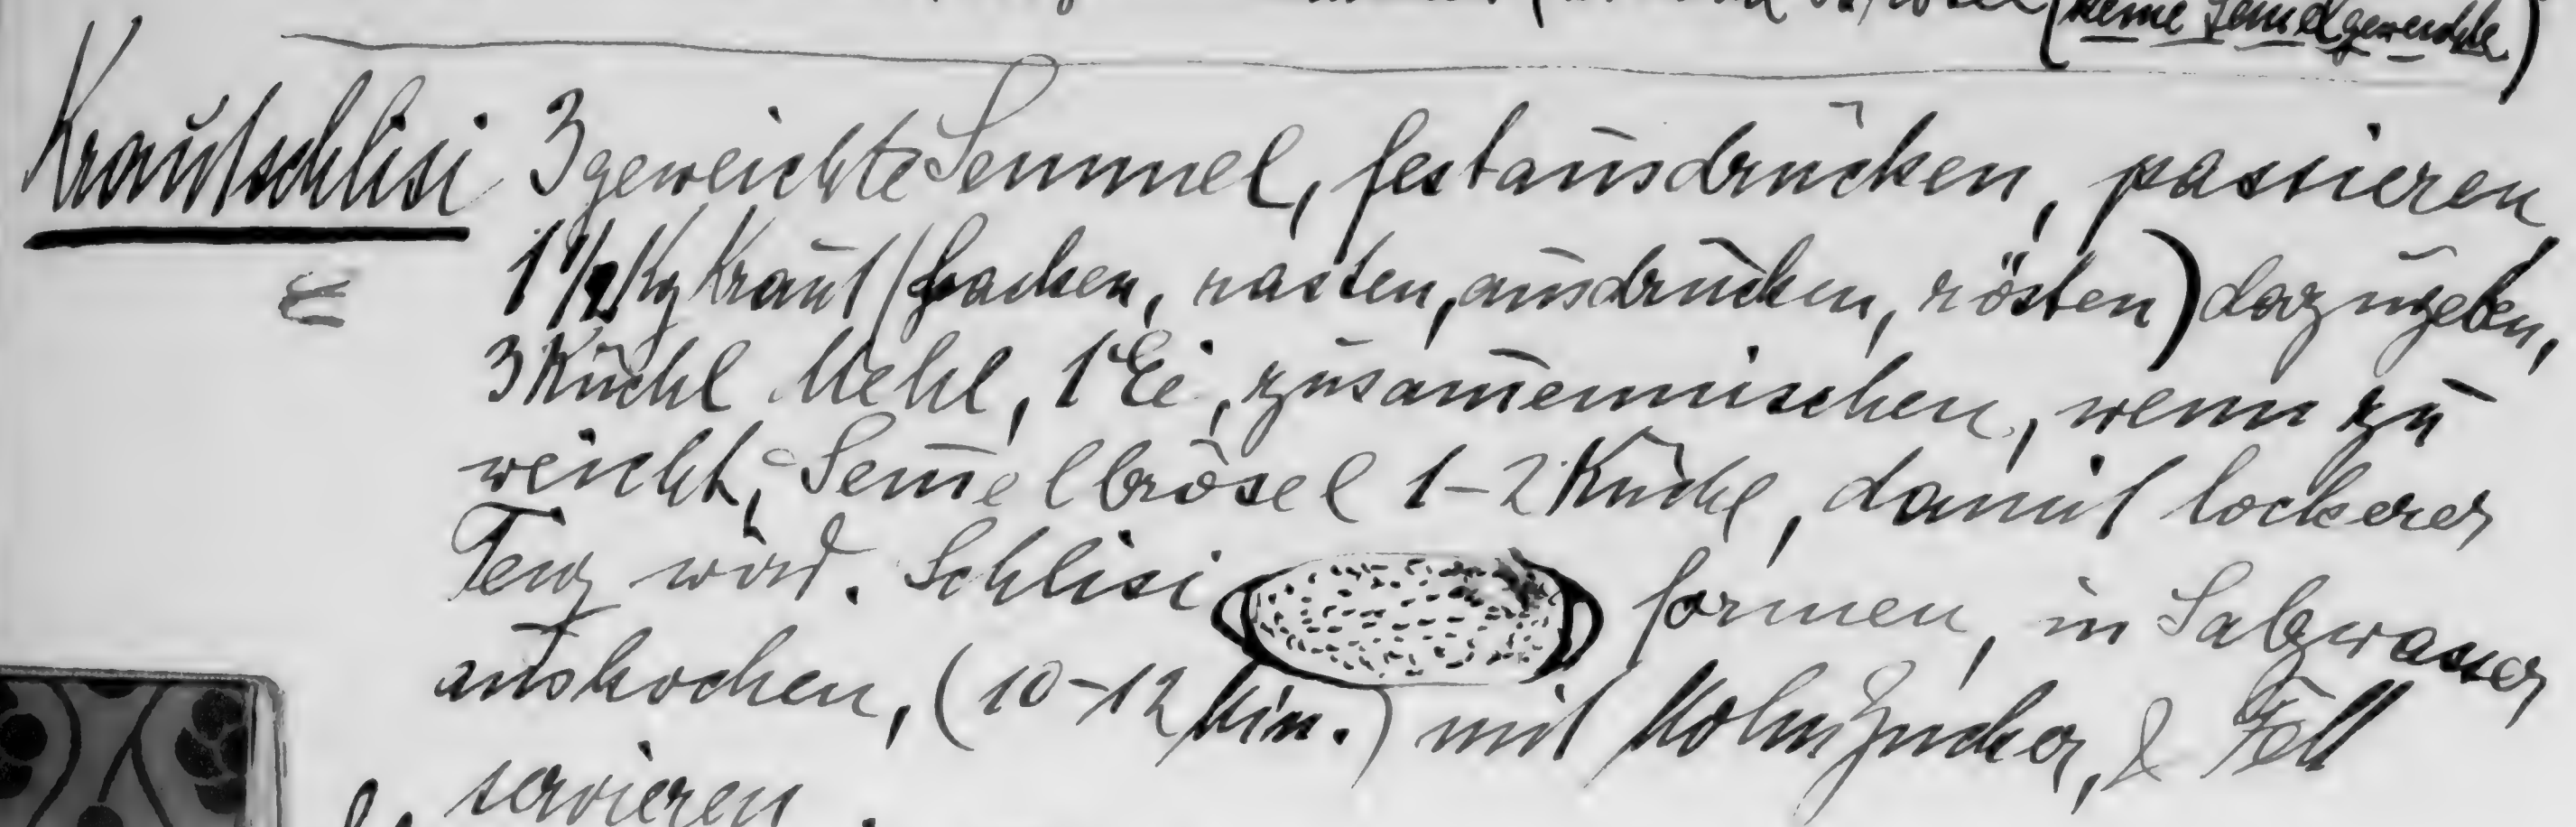 (keine Semelgeweichte)
Krautschlisi 3 geweichte Semmel, fest ausdrücken, passieren
1 1/2 Kg Kraut (hacken, rasten, ausdrücken, rösten) dazugeben,
3 Küchl Mehl, 1 Ei, zusam̄enmischen, wenn zu
weicht, Sem̄elbrösel 1-2 Küchl, damit lockerer
Teig wird. Schlisi formen, in Salzwasser
auskochen, (10-12 Min.) mit Mohnzucker, & Fett
servieren